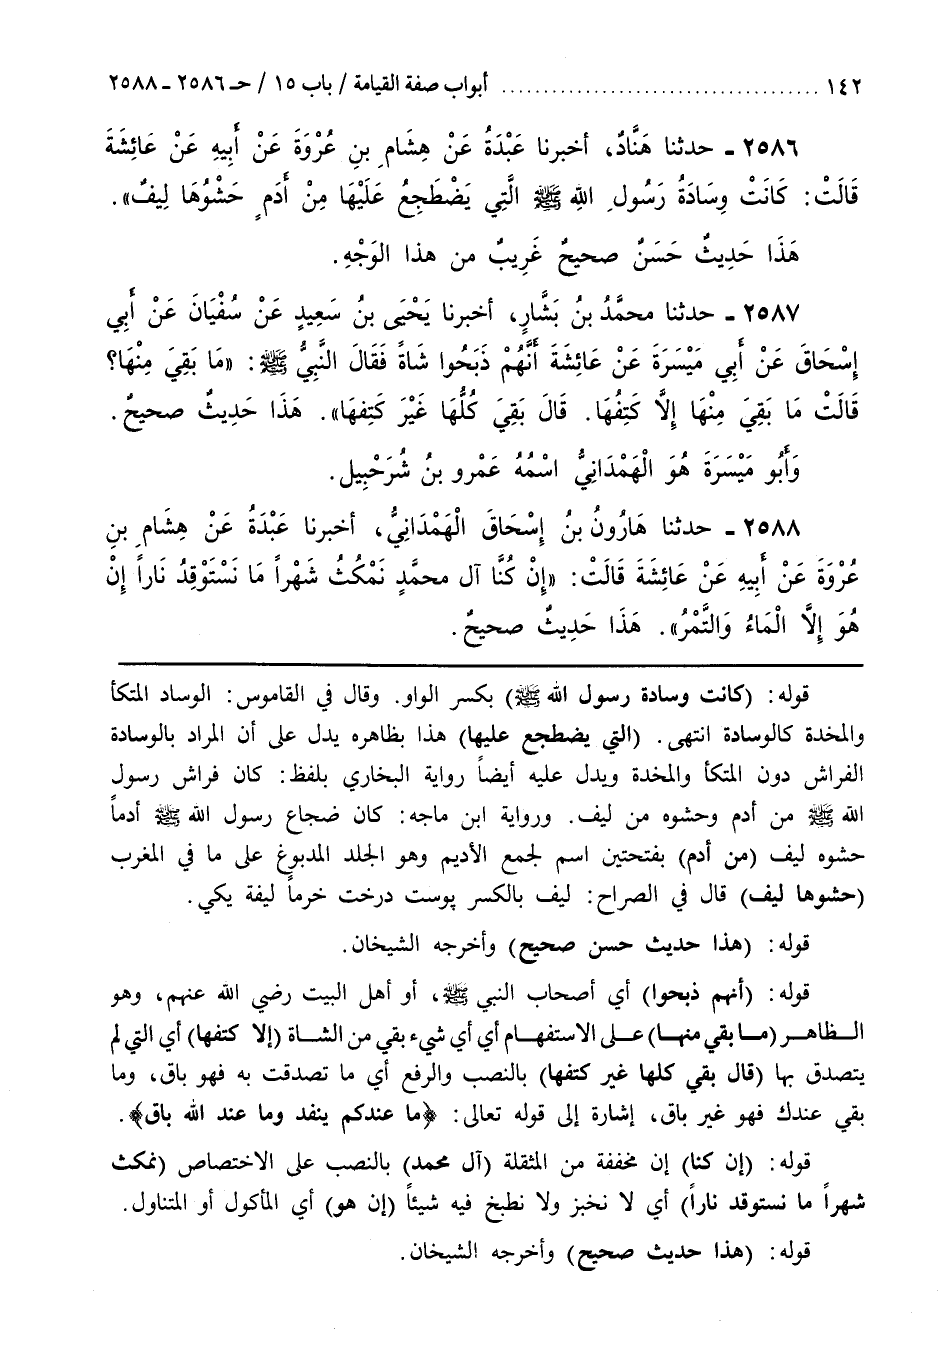 ١٤٢ ..................................... أبواب صفة القيامة / باب ١٥ / حـ ٢٥٨٦ ـ ٢٥٨٨
٢٥٨٦ ـ حدثنا هَنَّادٌ، أخبرنا عَبْدَةُ عَنْ هِشَامِ بنِ عُرْوَةَ عَنْ أَبِيهِ عَنْ عَائِشَةَ
قَالَتْ: كَانَتْ وِسَادَةُ رَسُولِ اللهِ ﷺ الَّتِي يَضْطَجِعُ عَلَيْهَا مِنْ أَدَمٍ حَشْوُهَا لِيفٌ».
هَذَا حَدِيثٌ حَسَنٌ صحيحٌ غَرِيبٌ من هذا الوَجْهِ.
٢٥٨٧ ـ حدثنا محمَّدُ بنُ بَشَّارٍ، أخبرنا يَحْيَى بنُ سَعِيدٍ عَنْ سُفْيَانَ عَنْ أَبي
إِسْحَاقَ عَنْ أَبي مَيْسَرَةَ عَنْ عَائِشَةَ أَنَّهُمْ ذَبَحُوا شَاةً فَقَالَ النَّبِيُّ ﷺ: «مَا بَقِيَ مِنْهَا؟
قَالَتْ مَا بَقِيَ مِنْهَا إِلَّا كَتِفُهَا. قَالَ بَقِيَ كُلُّهَا غَيْرَ كَتِفهَا». هَذَا حَدِيثٌ صحيحٌ.
وَأَبُو مَيْسَرَةَ هُوَ الْهَمْدَانِيُّ اسْمُهُ عَمْرو بنُ شُرَحْبِيل.
٢٥٨٨ ـ حدثنا هَارُونُ بنُ إِسْحَاقَ الْهَمْدَانِيُّ، أخبرنا عَبْدَةُ عَنْ هِشَامِ بنِ
عُرْوَةَ عَنْ أَبِيهِ عَنْ عَائِشَةَ قَالَتْ: «إِنْ كُنَّا آل محمَّدٍ نَمْكُثُ شَهْراً مَا نَسْتَوْقِدُ نَاراً إِنْ
هُوَ إِلَّا الْمَاءُ وَالتَّمْرُ». هَذَا حَدِيثٌ صحيحٌ.
قوله: (كانت وسادة رسول الله ﷺ) بكسر الواو. وقال في القاموس: الوساد المتكأ
والمخدة كالوسادة انتهى. (التي يضطجع عليها) هذا بظاهره يدل على أن المراد بالوسادة
الفراش دون المتكأ والمخدة ويدل عليه أيضاً رواية البخاري بلفظ: كان فراش رسول
الله ﷺ من أدم وحشوه من ليف. ورواية ابن ماجه: كان ضجاع رسول الله ﷺ أدماً
حشوه ليف (من أدم) بفتحتين اسم لجمع الأديم وهو الجلد المدبوغ على ما في المغرب
(حشوها ليف) قال في الصراح: ليف بالكسر پوست درخت خرماً ليفة يكي.
قوله: (هذا حديث حسن صحيح) وأخرجه الشيخان.
قوله: (أنهم ذبحوا) أي أصحاب النبي ﷺ، أو أهل البيت رضي الله عنهم، وهو
الـظاهـر (مـا بقي منهـا) عـلى الاستفهـام أي أي شيء بقي من الشـاة (إلا كتفها) أي التي لم
يتصدق بها (قال بقي كلها غير كتفها) بالنصب والرفع أي ما تصدقت به فهو باق، وما
بقي عندك فهو غير باق، إشارة إلى قوله تعالى: ﴿ما عندكم ينفد وما عند الله باق﴾.
قوله: (إن كنا) إن مخففة من المثقلة (آل محمد) بالنصب على الاختصاص (نمكث
شهراً ما نستوقد ناراً) أي لا نخبز ولا نطبخ فيه شيئاً (إن هو) أي المأكول أو المتناول.
قوله: (هذا حديث صحيح) وأخرجه الشيخان.